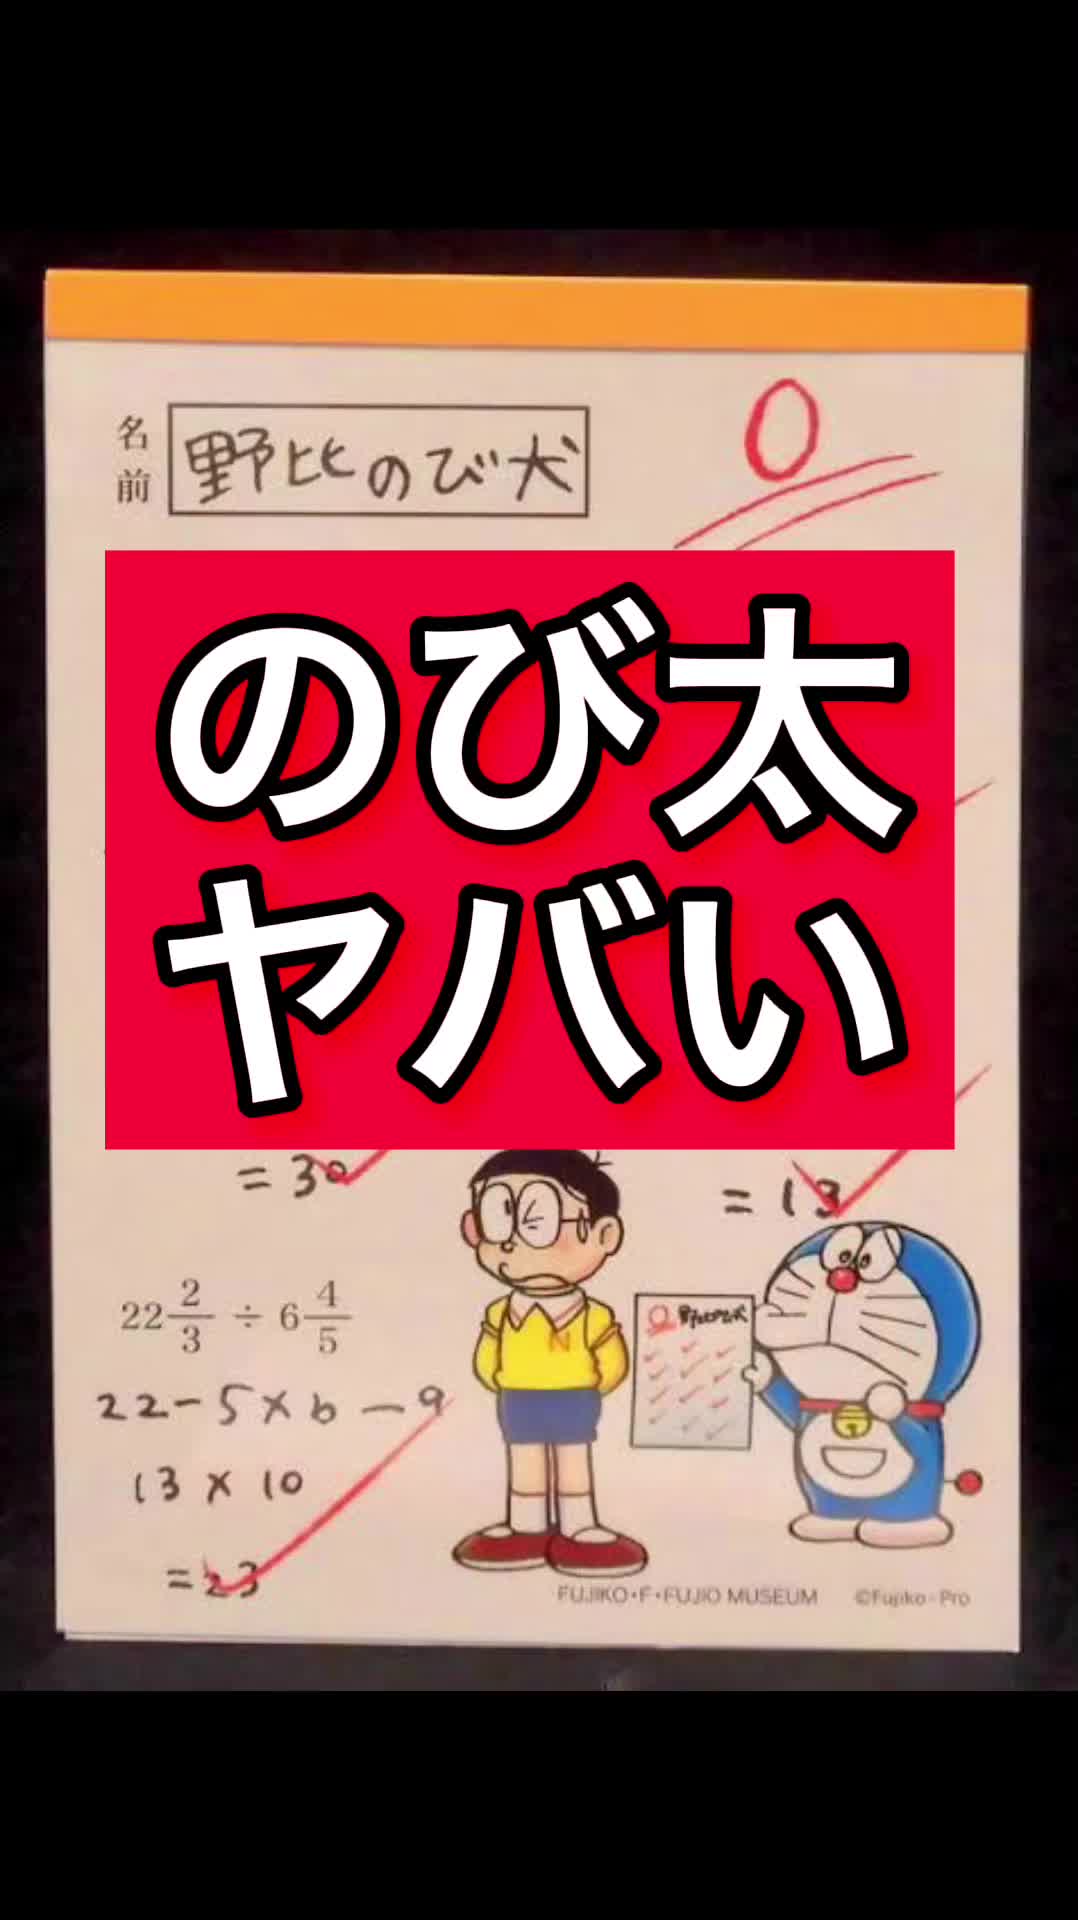 名前
野比のび犬
0
のび太
ヤバい
=30
=13
22 2/3 ÷ 6 4/5
22-5×6-9
13×10
=23
0 野比のび犬
N
FUJIKO・F・FUJIO MUSEUM ©Fujiko-Pro